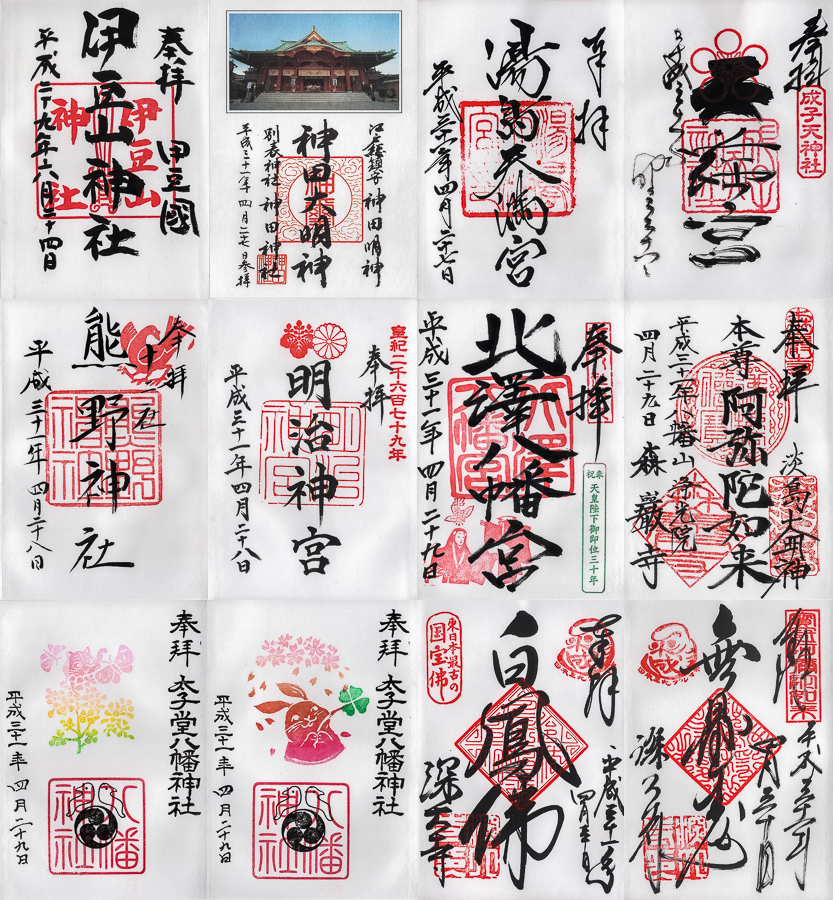 奉拝
伊豆國
伊豆山神社
平成二十九年六月二十四日
伊豆山
神社
江戸総鎮守 神田明神
神田大明神
別表神社 神田神社
平成三十一年 四月二十七日参拝
奉拝
湯島天満宮
平成三十一年四月二十七日
奉拝
成子天神社
奉拝
熊野神社
平成三十一年 四月二十八日
皇紀二千六百七十九年
奉拝
明治神宮
平成三十一年 四月二十八日
奉拝
北澤八幡宮
平成三十一年 四月二十九日
奉祝 天皇陛下御即位三十年
奉拝
淡島大明神
本尊 阿弥陀如来
平成三十一年 八幡山浄光院
四月二十九日 森巖寺
奉拝 太子堂八幡神社
平成三十一年 四月二十九日
八幡神社
奉拝 太子堂八幡神社
平成三十一年 四月二十九日
八幡神社
東日本最古の
国宝佛
奉拝
白鳳佛
深大寺